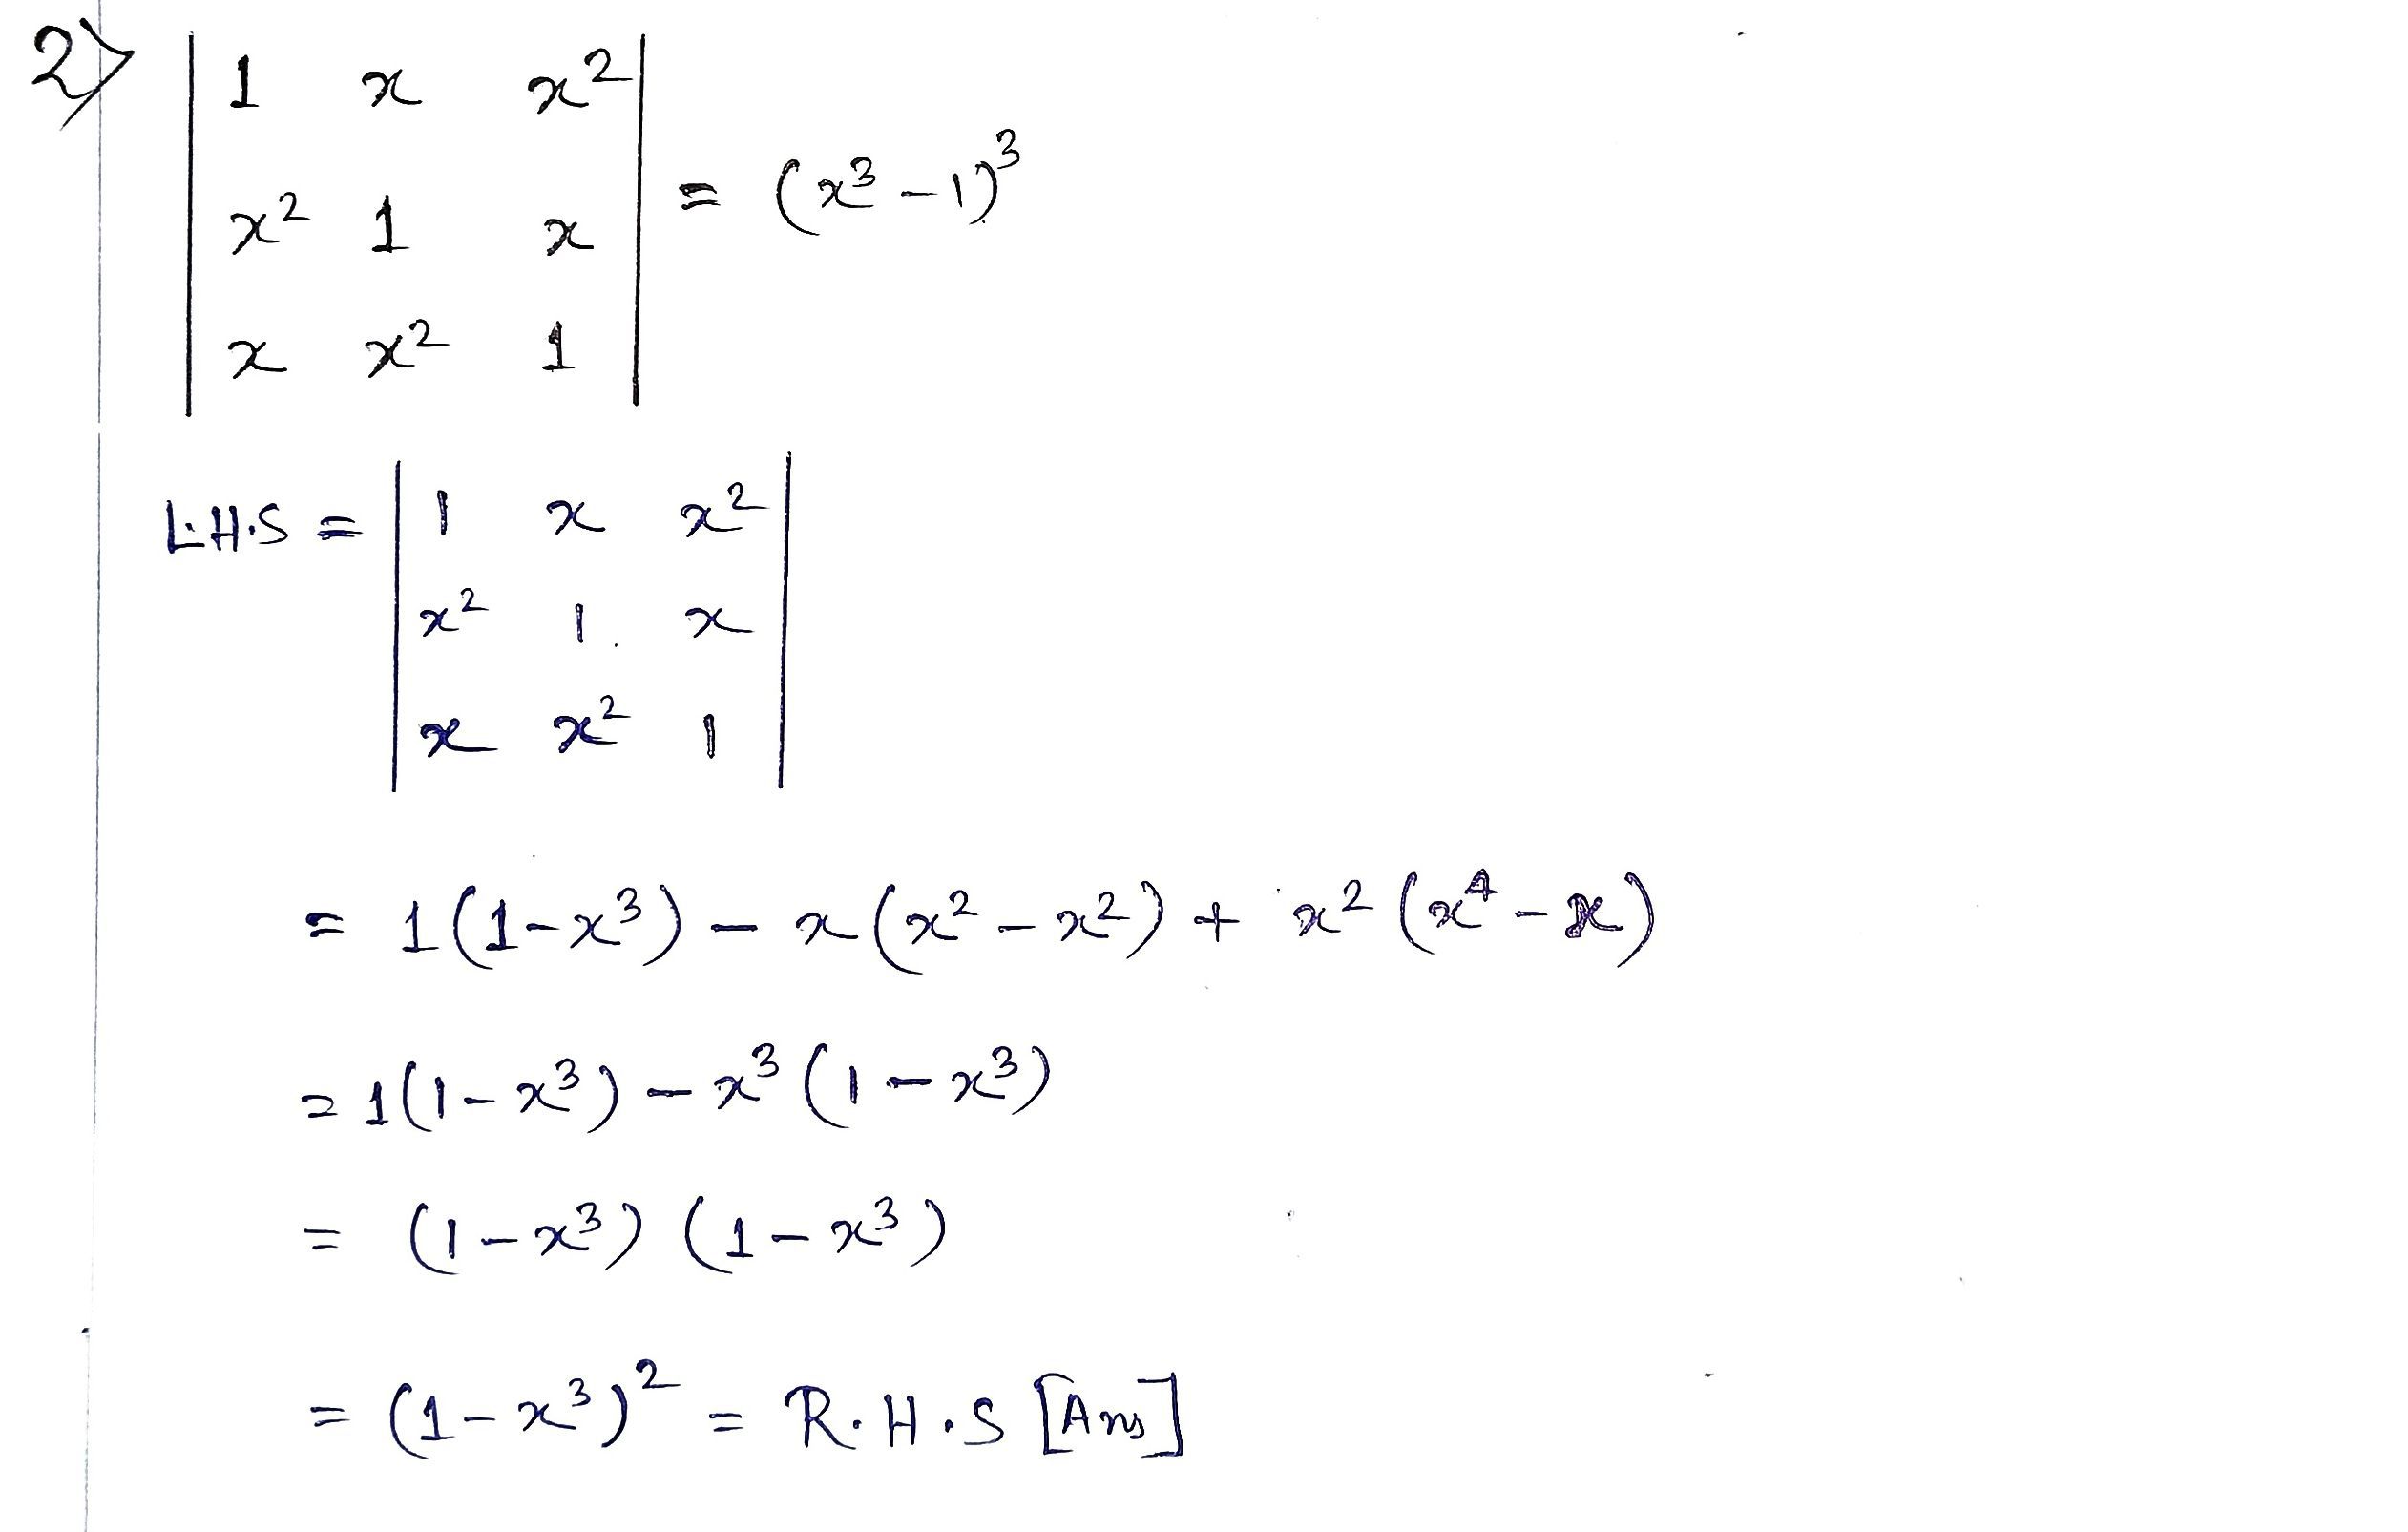 2) | 1 x x² |
| x² 1 x | = (x³ – 1)³
| x x² 1 |
L.H.S = | 1 x x² |
| x² 1 x |
| x x² 1 |
= 1(1-x³) – x(x² – x²) + x²(x⁴ – x)
= 1(1-x³) – x³(1 – x³)
= (1-x³)(1-x³)
= (1-x³)² = R.H.S [Ans]